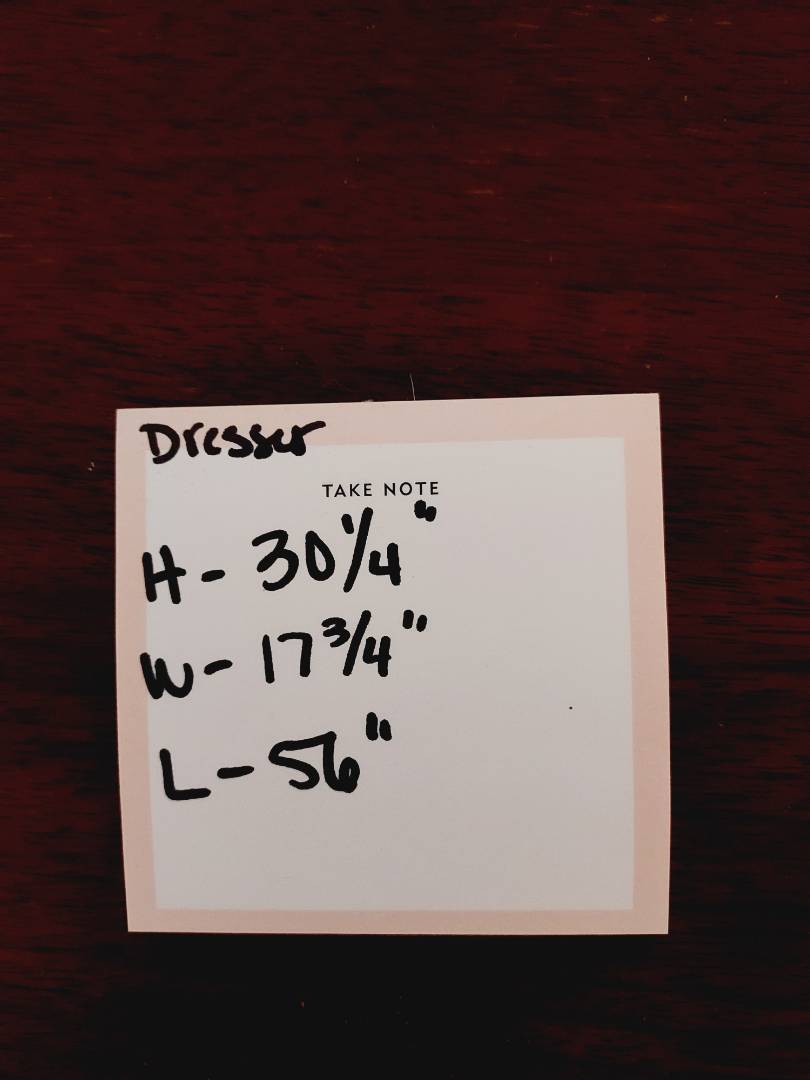 Dresser
TAKE NOTE
H - 30 1/4"
W - 17 3/4"
L - 56"